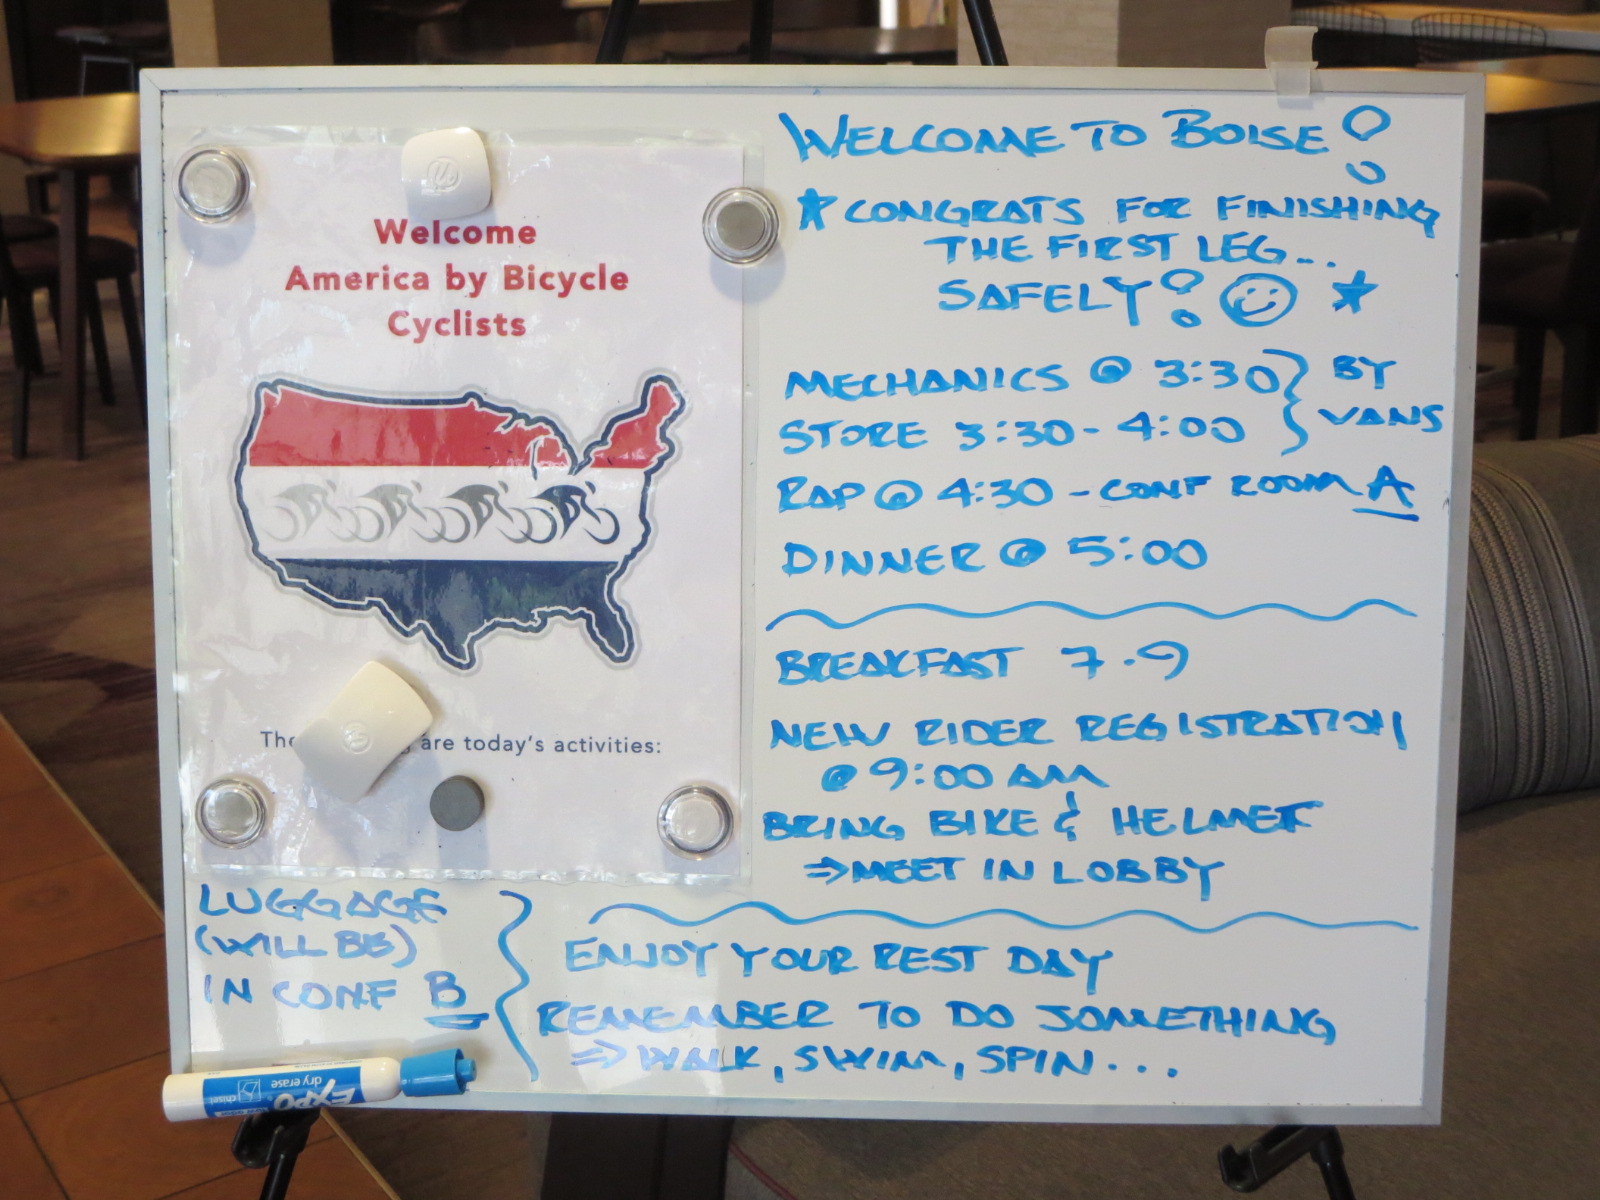 Welcome
America by Bicycle
Cyclists
are today's activities:
WELCOME TO BOISE!
★ CONGRATS FOR FINISHING
THE FIRST LEG...
SAFELY! ☺ ★
MECHANICS @ 3:30 } BY
STORE 3:30 - 4:00 } VANS
RAP @ 4:30 - CONF ROOM A
DINNER @ 5:00
BREAKFAST 7-9
NEW RIDER REGISTRATION
@ 9:00 AM
BRING BIKE & HELMET
⇒ MEET IN LOBBY
LUGGAGE
(WILL BE)
IN CONF B
ENJOY YOUR REST DAY
REMEMBER TO DO SOMETHING
⇒ WALK, SWIM, SPIN...
EXPO
dry erase
chisel